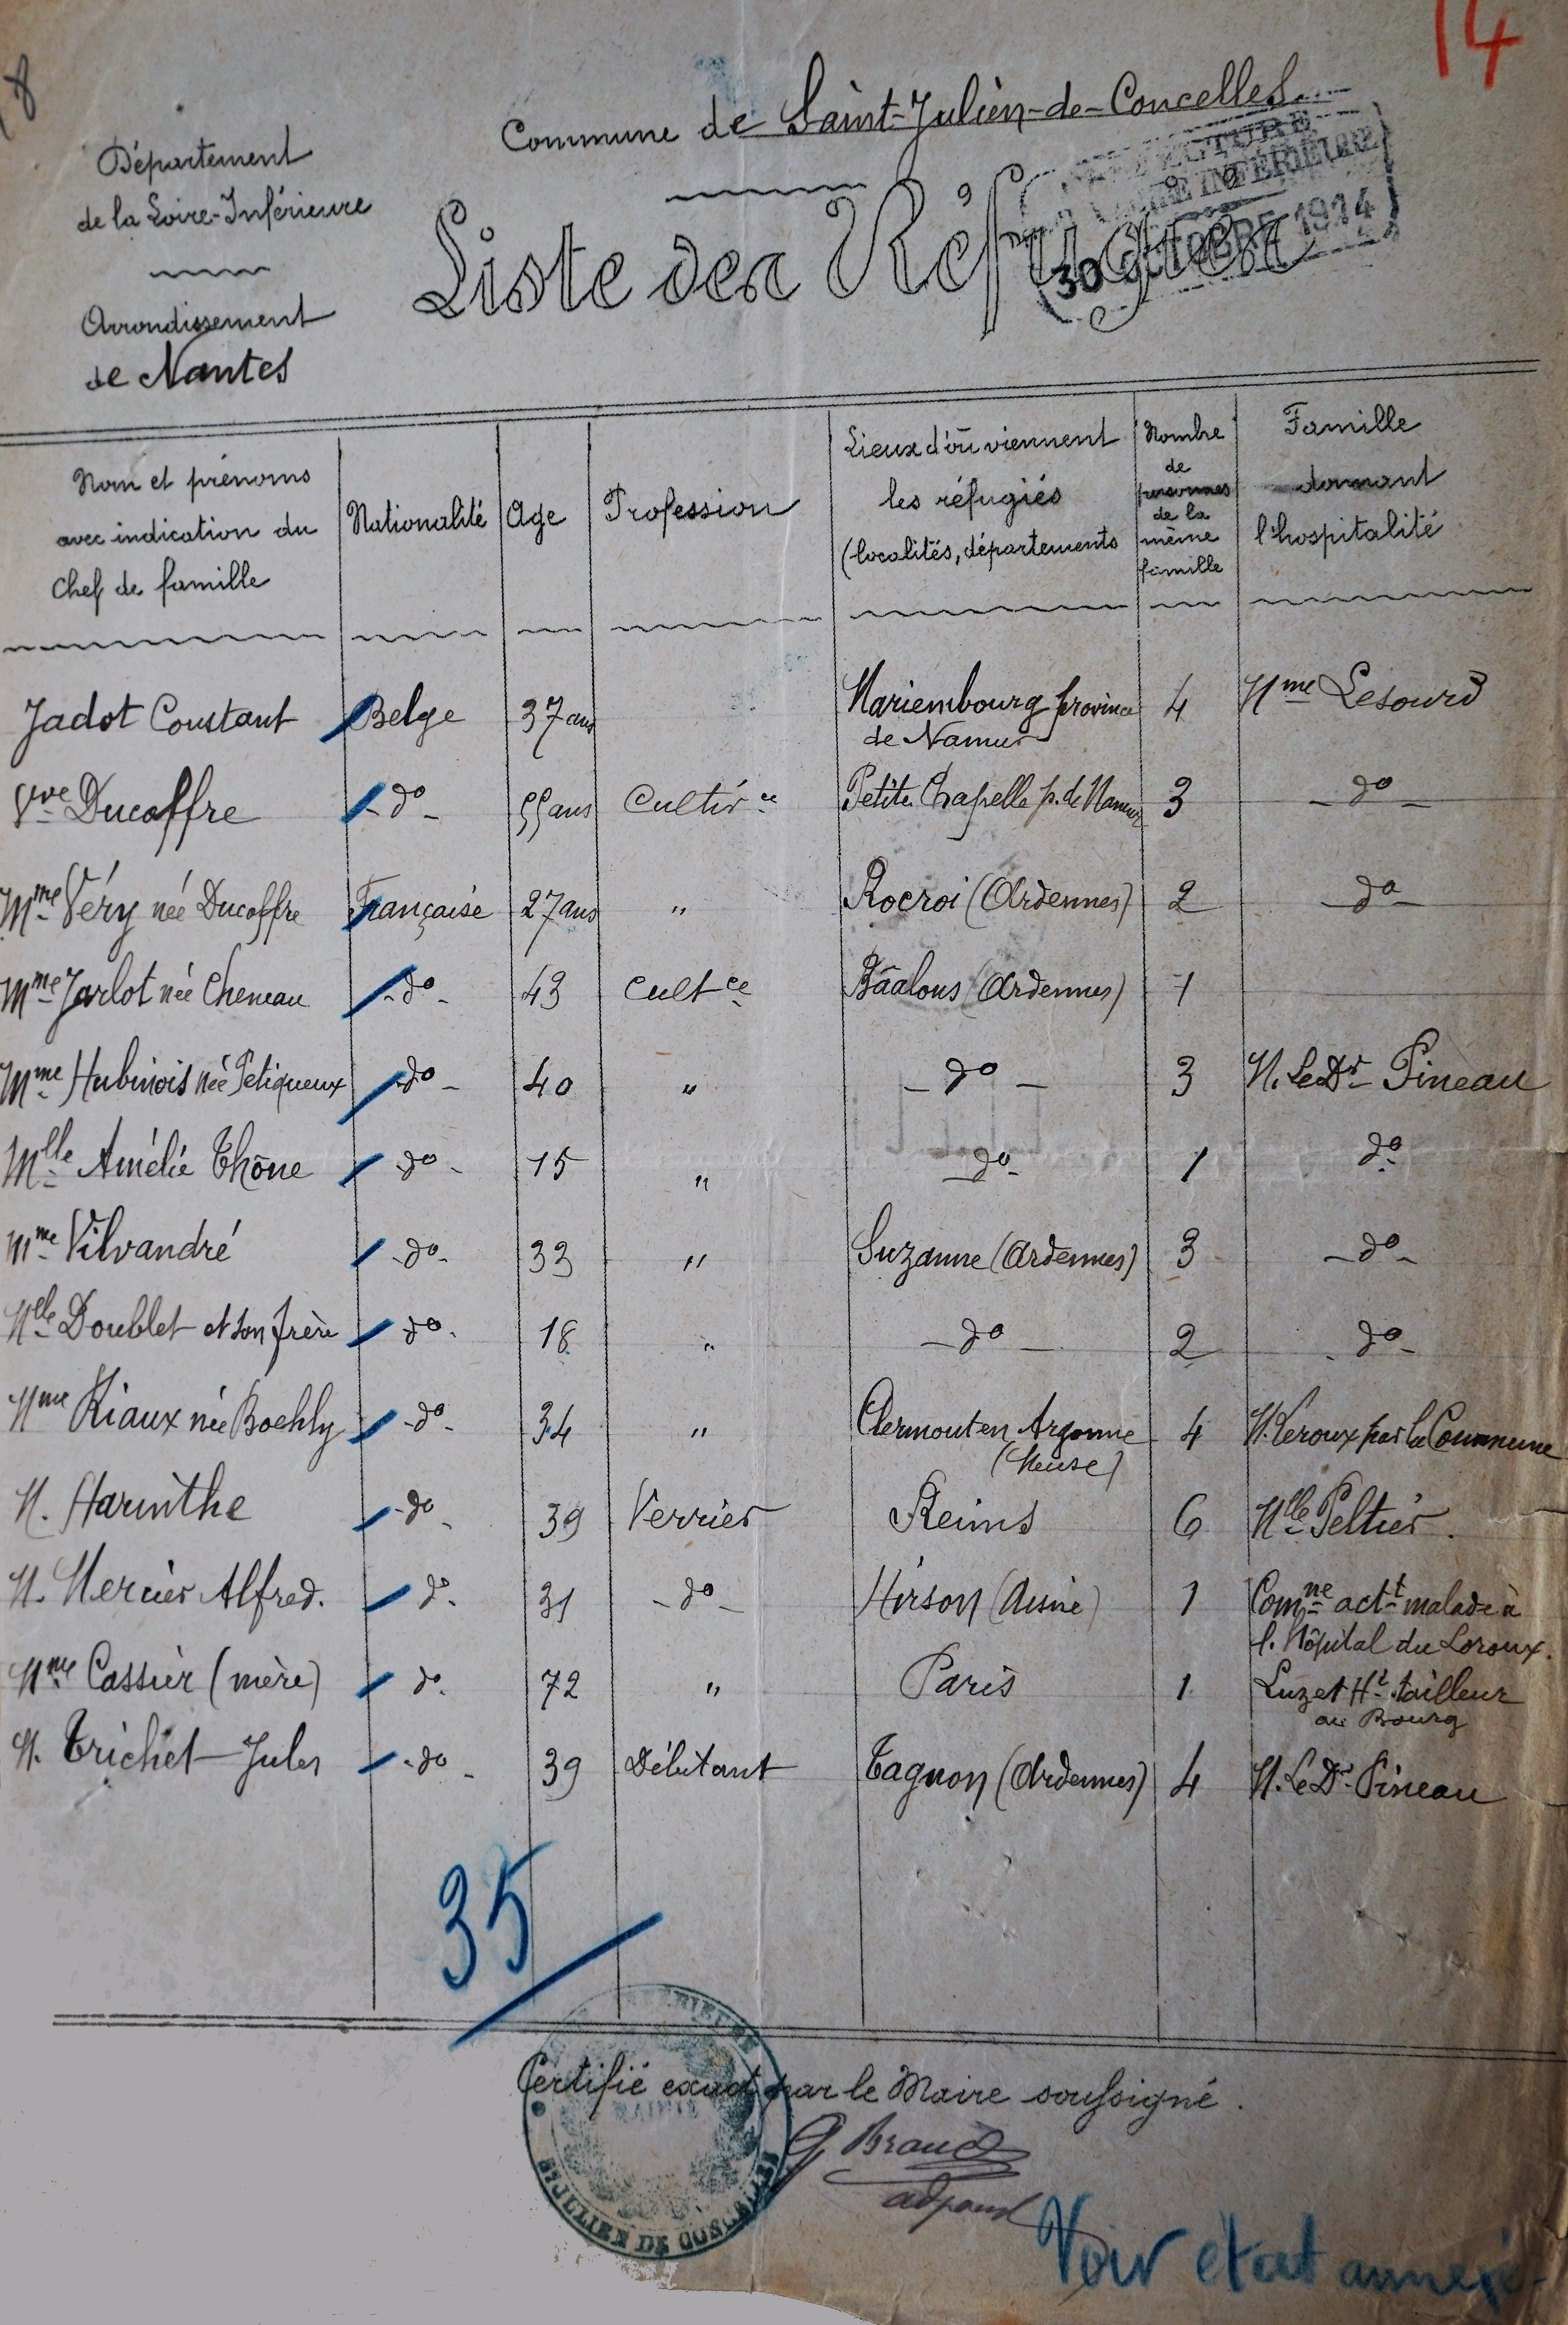 14
Département
de la Loire-Inférieure
Arrondissement
de Nantes
Commune de Saint-Julien-de-Concelles
Liste des Réfugiés
LOIRE INFÉRIEURE
30 OCTOBRE 1914
Nom et prénoms
avec indication du
Chef de famille
Nationalité
Age
Profession
Lieux d'où viennent
les réfugiés
(localités, départements
Nombre
de
personnes
de la
même
famille
Famille
donnant
l'hospitalité
Jadot Constant Belge 37 ans Mariembourg province de Namur 4 Mme Lesourd
Vve Ducoffre -do- 55 ans Cultivce Petite Chapelle p. de Namur 3 -do-
Mme Véry née Ducoffre Française 27 ans " Rocroi (Ardennes) 2 -do-
Mme Jarlot née Cheneau -do- 43 Cultce Bâalons (Ardennes) 1
Mme Hubinois née Petiqueux -do- 40 " -do- 3 M. Le Dr Pineau
Mlle Amélie Thône -do- 15 " -do- 1 do
Mme Vilvandré -do- 33 " Suzanne (Ardennes) 3 -do-
Melle Doublet et son frère -do- 18 " -do- 2 -do-
Mme Riaux née Boehly -do- 34 " Clermont en Argonne (Meuse) 4 M. Leroux par la Commune
M. Harinthe -do- 39 Verrier Reims 6 Mlle Peltier.
M. Mercier Alfred. -do- 31 -do- Hirson (Aisne) 1 Comne actt malade à l'hôpital du Loroux.
Mme Cassier (mère) do 72 " Paris 1 Luzet Ht tailleur au Bourg
M. Trichet Jules -do- 39 Débitant Tagnon (Ardennes) 4 M. Le Dr Pineau
35
Certifié exact par le Maire soussigné.
MAIRIE
ST JULIEN DE CONCELLES
Voir état annexé